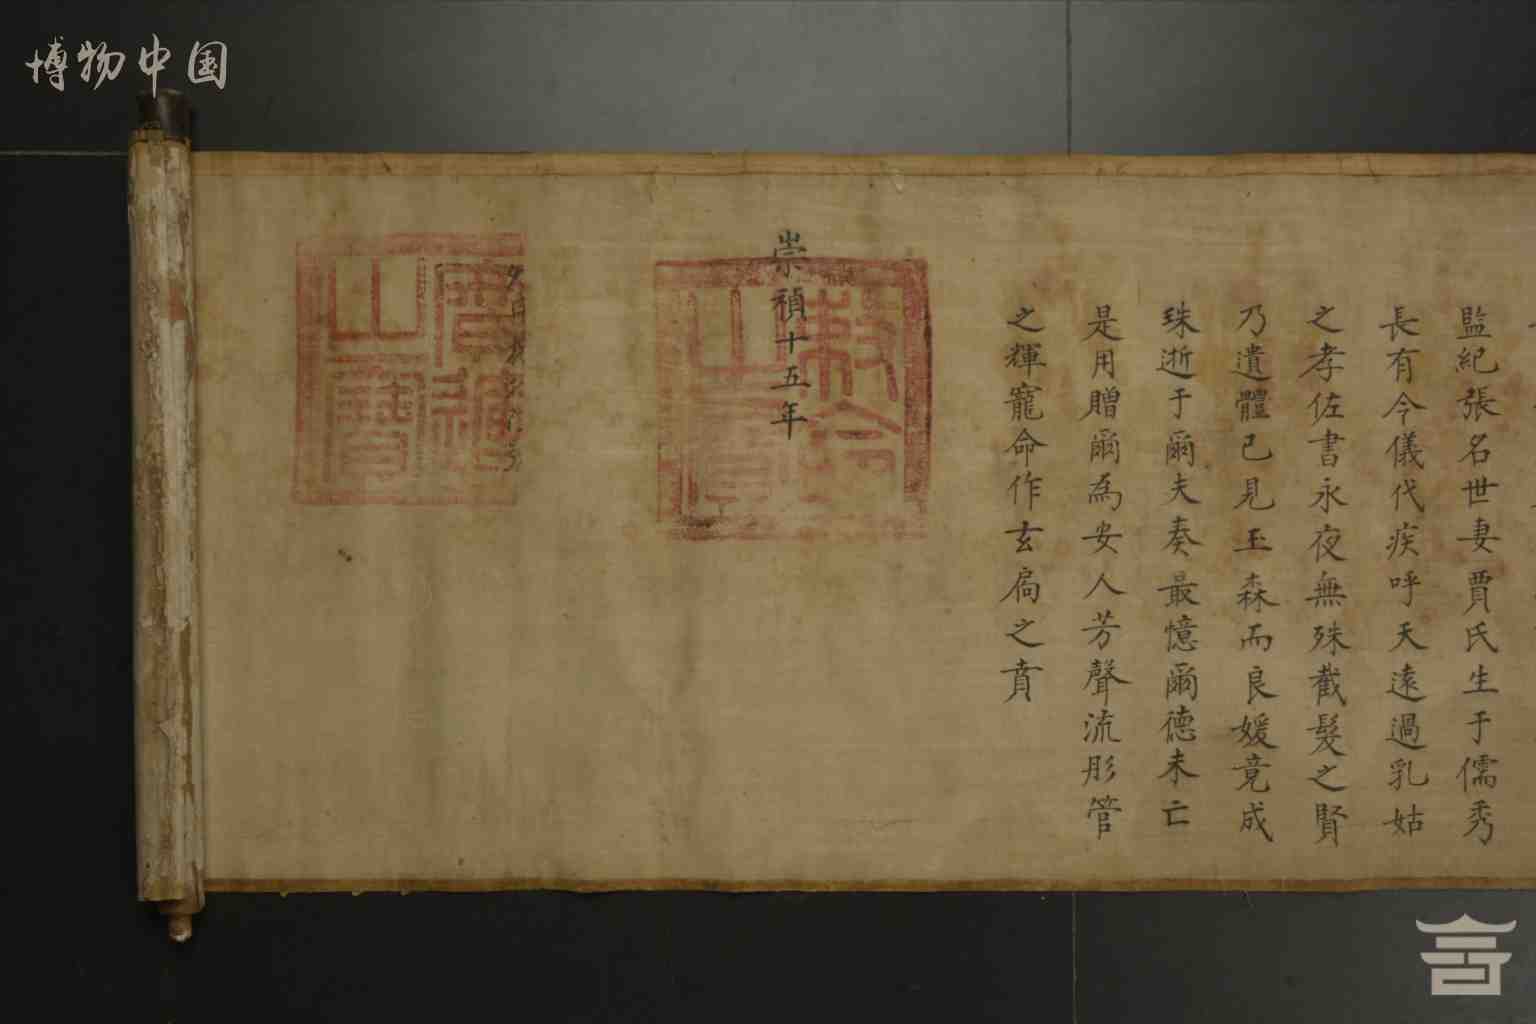 博物中国
監紀張名世妻賈氏生于儒秀
長有令儀代疾呼天遠過乳姑
之孝佐書永夜無殊截髮之賢
乃遺體已見玉森而良媛竟成
珠逝于爾夫奏最憶爾德未亡
是用贈爾為安人芳聲流彤管
之輝寵命作玄扃之賁
崇禎十五年
制命之寶